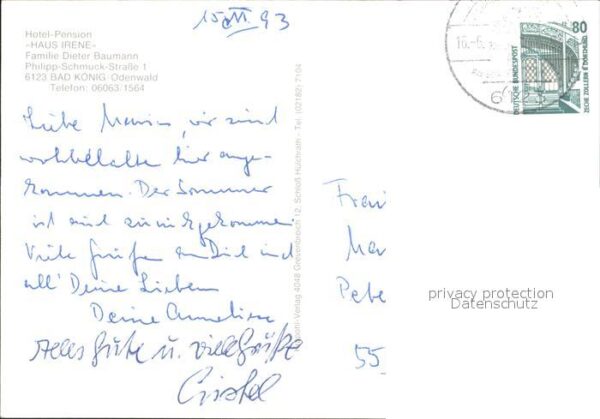 15. VI. 93
Hotel-Pension
»HAUS IRENE«
Familie Dieter Baumann
Philipp-Schmuck-Straße 1
6123 BAD KÖNIG Odenwald
Telefon: 06063/1564
Liebe wir sind
wohlbehalten hier ange-
kommen. Der Sommer
ist mit zurückgekommen
Viele Grüße an Dich und
all' Deine Lieben
Deine Annelise
Alles Gute u. viele Grüße
Christel
-Verlag 4048 Grevenbroich 12, Schloß Hülchrath - Tel. (02182) 7104
16.-6.
612
80
DEUTSCHE BUNDESPOST
ZECHE ZOLLERN II DORTMUND
Frau
Mar
Pete
55
privacy protection
Datenschutz